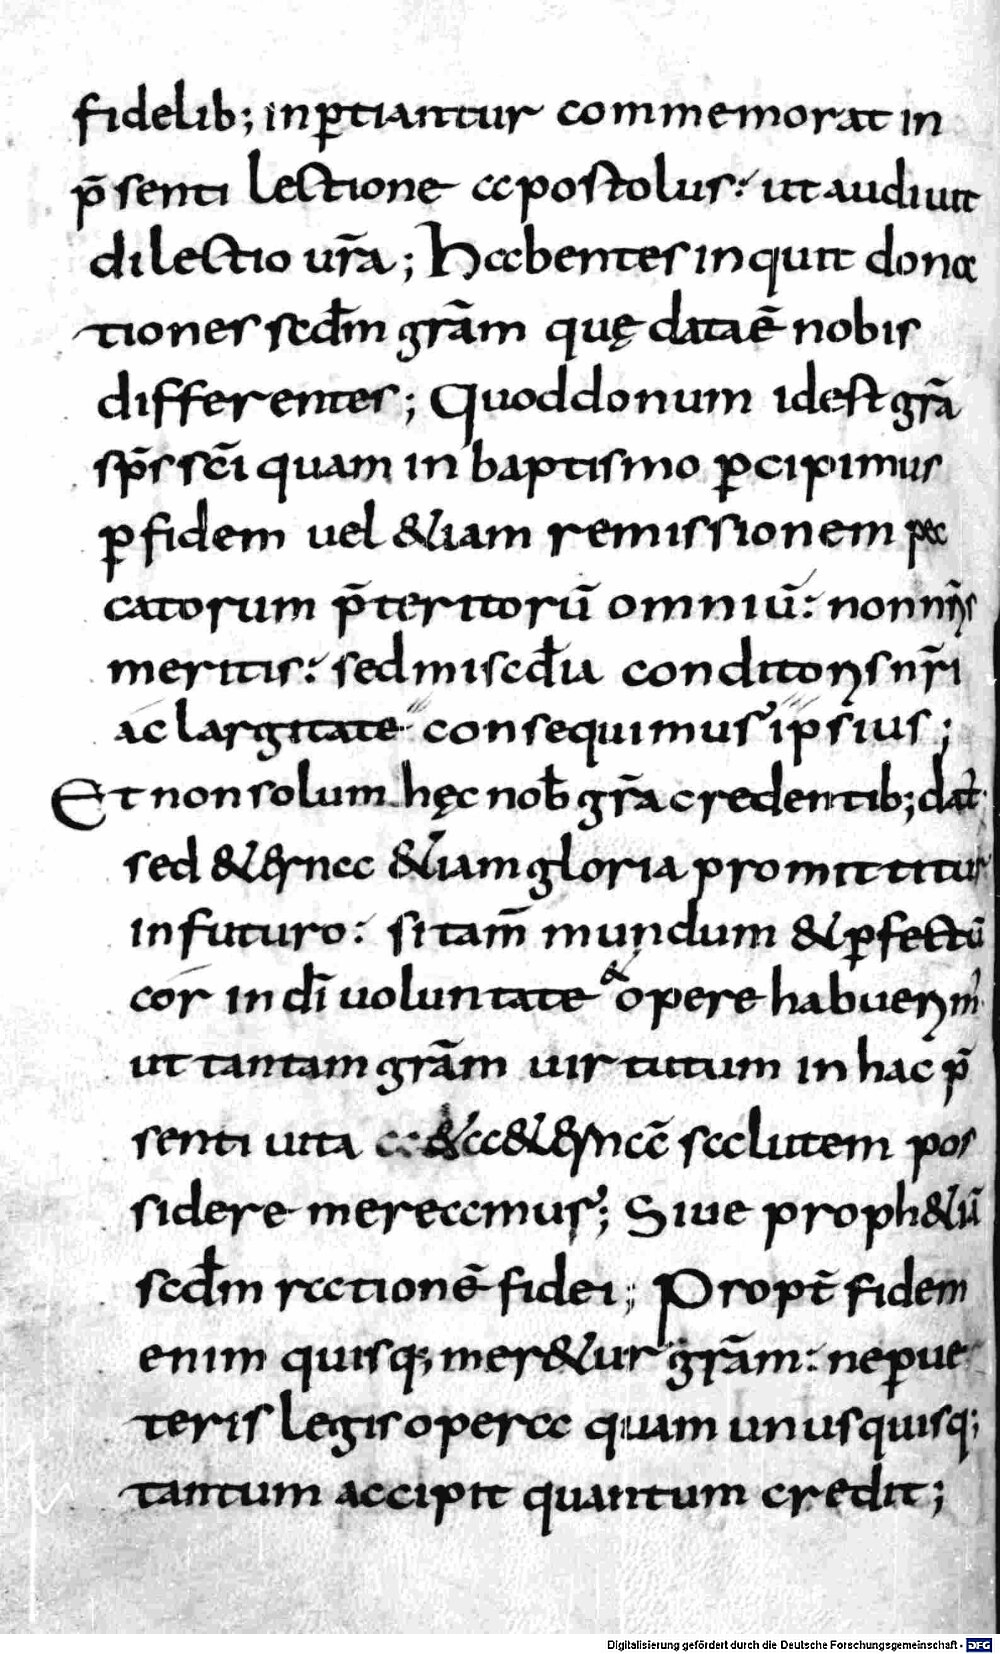 fidelib; inꝑtiantur commemorat in
p̄senti lectione apostolus: ut audiuit
dilectio ur̄a; Habentes inquit dona
tiones scd̄m gr̄am quę data ē nobis
differentes; Quod donum id est gr̄a
sp̄s sc̄i quam in baptismo ꝑcipimus
ꝑ fidem uel &iam remissionem pec
catorum p̄teritorū omniū: non nr̄is
meritis: sed miscd̄ia conditoris nr̄i
ac largitate consequimur ipsius;
Et non solum hęc nob̄ gr̄a credentib; dat̄
sed &&erna &iam gloria promittitur
in futuro: si tam̄ mundum & ꝑfectū
cor in dī uoluntate & opere habuerim'
ut tantam gr̄am uirtutum in hac p̄
senti uita &a&ernā salutem pos
sidere mereamur; Siue proph&iā
scd̄m rationē fidei; Propt̄ fidem
enim quisq; mer&ur gr̄am: ne ꝑ ue
teris legis opera quam unusquisq;
tantum accipit quantum credit;
Digitalisierung gefördert durch die Deutsche Forschungsgemeinschaft - DFG